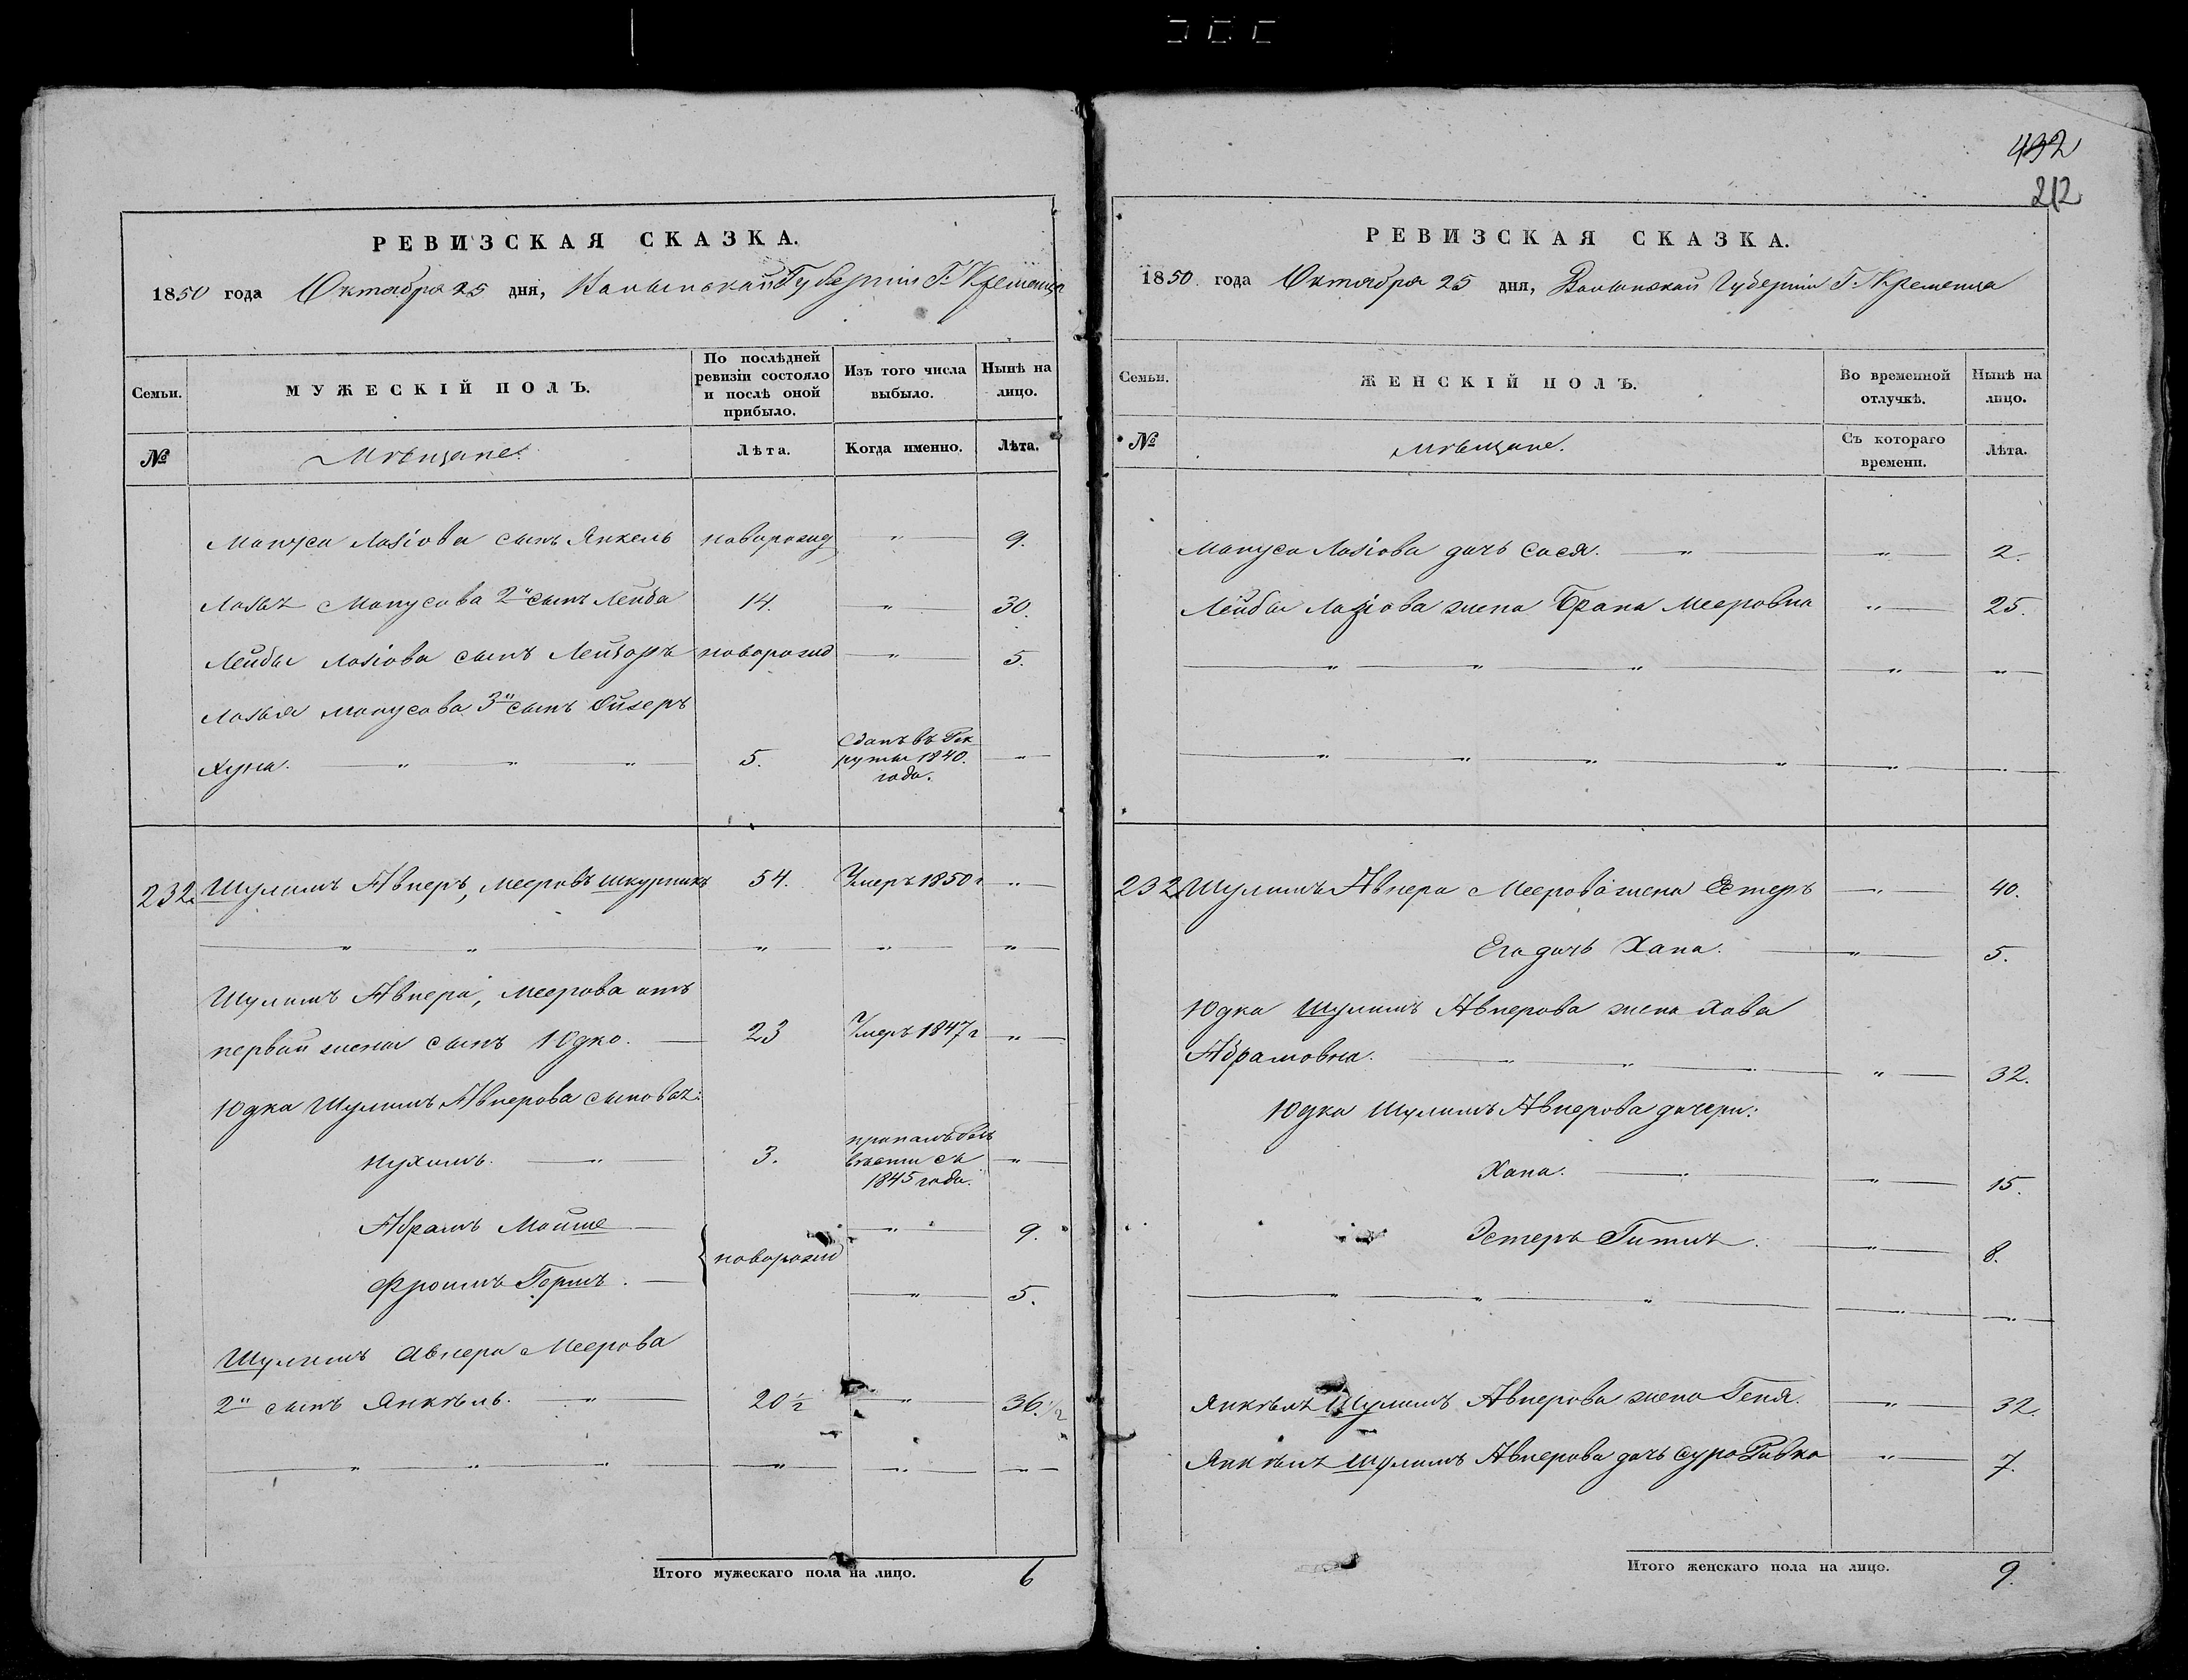 РЕВИЗСКАЯ СКАЗКА.
1850 года Октября 25 дня, Волынской Губерніи Г. Кременца
Семьи.
МУЖЕСКІЙ ПОЛЪ.
По послѣдней
ревизіи состояло
и послѣ оной
прибыло.
Изъ того числа
выбыло.
Нынѣ на
лицо.
№
Мѣщане.
Лѣта.
Когда именно.
Лѣта.
Мануса Лазіова сынъ Янкель новорожд " 9.
Манусова 2й сынъ Лейба 14. " 30.
Лейбы Лазіова сынъ Лейзоръ новорожд " 5.
Манусова 3й сынъ Ойзеръ
Хуна. " " " 5. Сданъ въ Рек
руты 1840.
года. "
232. Шулимъ Авнеръ, Мееровъ Шкурникъ 54. Умеръ 1850 г "
" " " " "
Шулимъ Авнера, Меерова отъ
первой жены сынъ Юдко. 23 Умеръ 1847 г "
Юдка Шулимъ Авнерова сыновья:
Нухимъ. " 3. пропалъ безъ
вѣсти съ
1845 года. "
Абрамъ Мойше " 9.
новорожд
Фроимъ Гершъ. " 5.
Шулимъ Авнера Меерова
2й сынъ Янкѣль. " 20 1/2 " 36 1/2
" " " " " "
Итого мужескаго пола на лицо. 6
432
212
РЕВИЗСКАЯ СКАЗКА.
1850 года Октября 25 дня, Волынской Губерніи Г. Кременца
Семьи.
ЖЕНСКІЙ ПОЛЪ.
Во временной
отлучкѣ.
Нынѣ на
лицо.
№
Мѣщане.
Съ котораго
времени.
Лѣта.
Мануса Лазіова дочь Сося. " " 2.
Лейбы Лазіова жена Брана Мееровна " 25.
" " " " "
" " " " " "
232 Шулимъ Авнера Меерова жена Естеръ " 40.
Его дочь Хана. " 5.
Юдка Шулимъ Авнерова жена Хава
Абрамовна. " " " " 32.
Юдка Шулимъ Авнерова дочери:
Хана. " " 15.
Эстеръ Гитля. " 8.
" " " " "
Янкѣля Шулимъ Авнерова жена Геня. " 32.
Янкѣля Шулимъ Авнерова дочь Сура Ривка " 7.
Итого женскаго пола на лицо. 9.